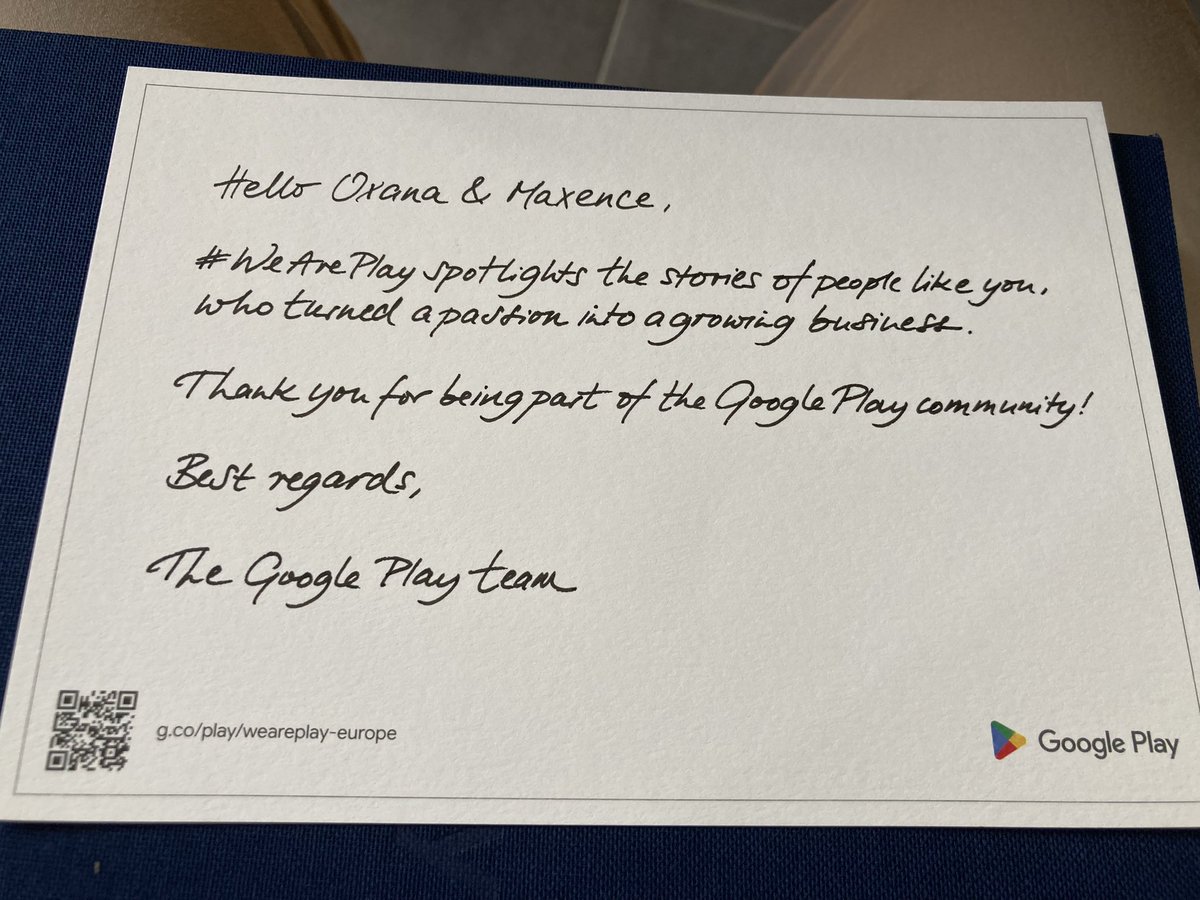 Hello Oxana & Maxence,
#WeArePlay spotlights the stories of people like you,
who turned a passion into a growing business.
Thank you for being part of the Google Play community!
Best regards,
The Google Play team
g.co/play/weareplay-europe
Google Play